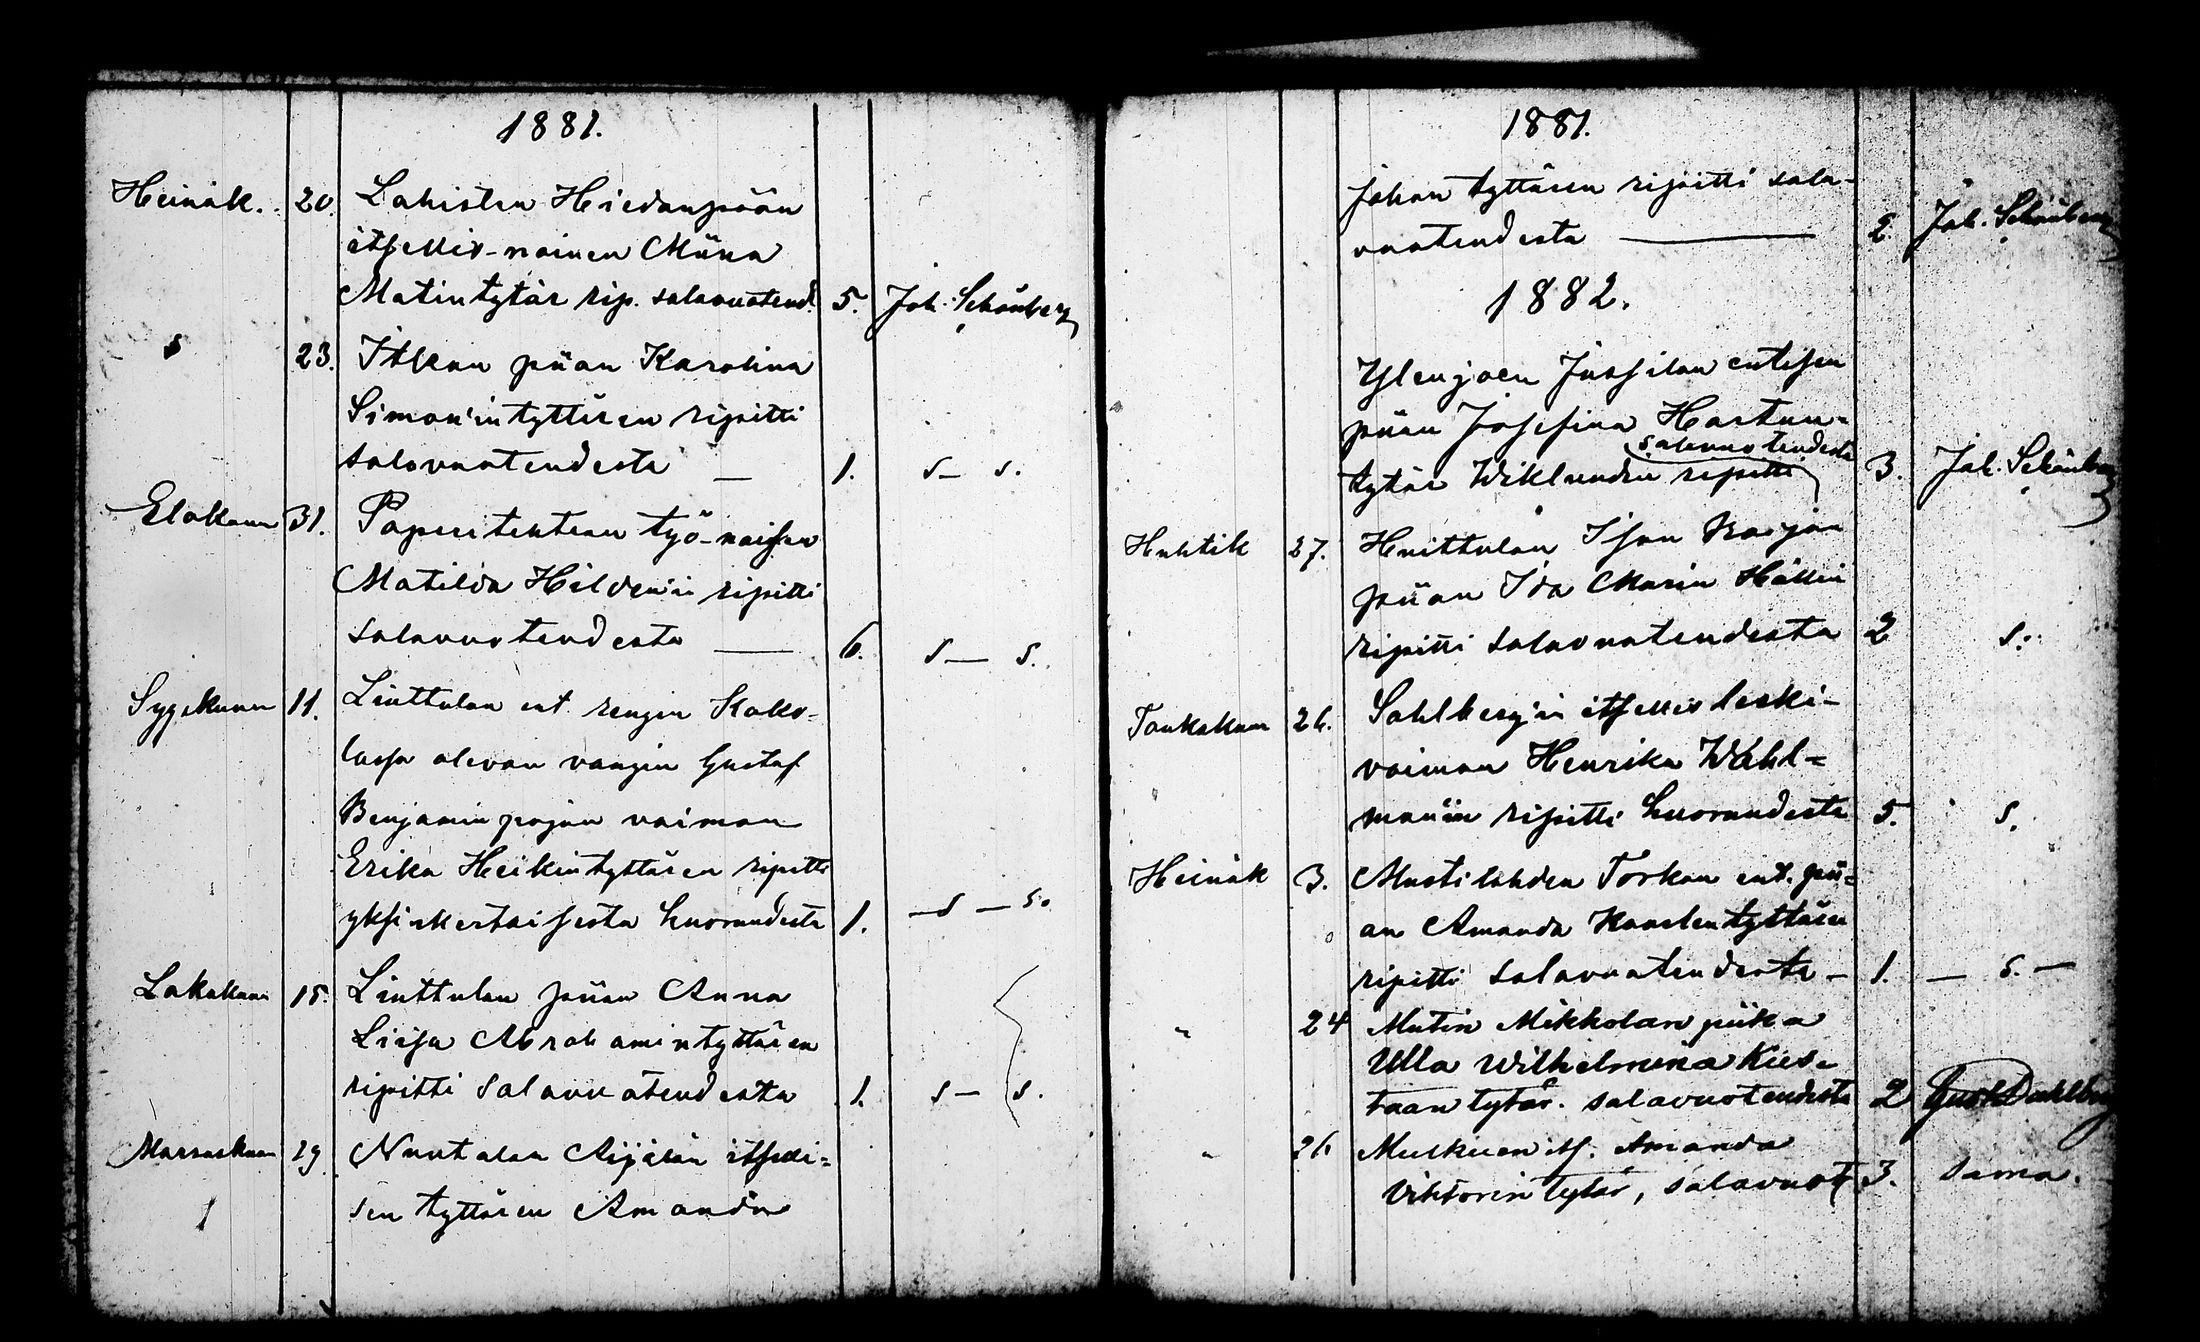 1881.
Heinäk. 20. Lahisten Hiedanpään
itsellis-nainen Miina
Matintytär rip. salavuotend. 5. Joh. Schönberg
s 23. Itkan piian Karolina
Simon'intyttären ripitti
salavuotendesta — 1. s — s.
Elokuun 31. Paperitehtaan työ-naisen
Matilda Hilden'in ripitti
salavuotendesta — 6. s — s.
Syyskuun 11. Liuttulan ent. rengin Kako-
lassa olevan vangin Gustaf
Benjamin pojan vaimon
Erika Heikintyttären ripitti
yksinkertaisesta huorundesta 1. — s — s.
Lokakuun 15. Liuttulan piian Anna
Liisa Abrahamintyttären
ripitti salavuotendesta 1. s — s.
Marraskuun 29 Nuutalan Äijälän itselli-
sen tyttären Amanda
1881.
Johan tyttären ripitti sala-
vuotendesta — 2. Joh. Schönberg
1882.
Ylenjoen Jussilan entisen
piian Josefina Kustaan-
salavuotendesta
tytär Wiklundin ripitti 3. Joh. Schönberg
Huhtik 27. Huittulan Ison Karjan
piian Ida Maria Hällin
ripitti salavuotendesta 2 s.
Toukokuun 26. Sahlberg'in itsellis leski-
vaimon Henrika Wahl-
man'in ripitti huorundesta 5. s.
Heinäk 3. Mustilahden Torkon ent. pii-
an Amanda Kaarlentyttären
ripitti salavuotendesta — 1. — s. —
" 24 Mutin Mikkolan piika
Ulla Wilhelmina Kus-
taan tytär. salavuotendesta 2 Gust Dahlberg
" 26 Muskuen its. Amanda
Viktorin tytär, salavuot 3. sama.